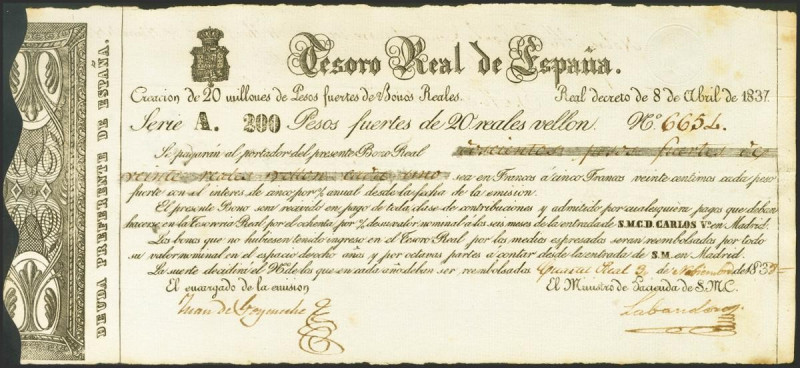 Tesoro Real de España.
Creacion de 20 millones de Pesos fuertes de Bonos Reales. Real decreto de 8 de Abril de 1837.
Serie A. 200 Pesos fuertes de 20 reales vellon. Nº 6654.
Se pagarán al portador del presente Bono Real doscientos pesos fuertes de
veinte reales vellon cada uno sea en Francos á cinco Francos veinte centimos cada peso
fuerte con el interes de cinco por % anual desde la fecha de la emision.
El presente Bono será recivido en pago de toda clase de contribuciones y admitido por cualesquiera pagos que deban
hacerse en la Tesoreria Real por el ochenta por % de su valor nominal á los seis meses de la entrada de S.M.C.D. CARLOS Vº. en Madrid.
Los bonos que no hubiesen tenido ingreso en el Tesoro Real por los medios espresados seran reembolsados por todo
su valor nominal en el espacio de ocho años y por octavas partes á contar desde la entrada de S.M. en Madrid.
La suerte decidirá el Nº de los que en cada año deban ser reembolsados Cuartel Real de de 183
El encargado de la emision El Ministro de Hacienda de S.M.C.
Juan de Goyeneche Labandero
DEUDA PREFERENTE DE ESPAÑA.